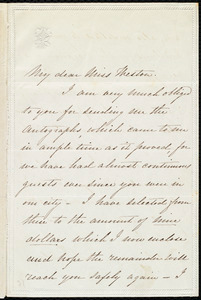 My dear Miss Weston
I am very much obliged
to you for sending me the
Autographs, which came to me
in ample time, as it proved, for
we have had almost continuous
guests ever since you were in
our city - I have selected from
them to the amount of nine
dollars which I now enclose
and hope the remainder will
reach you safely again - I